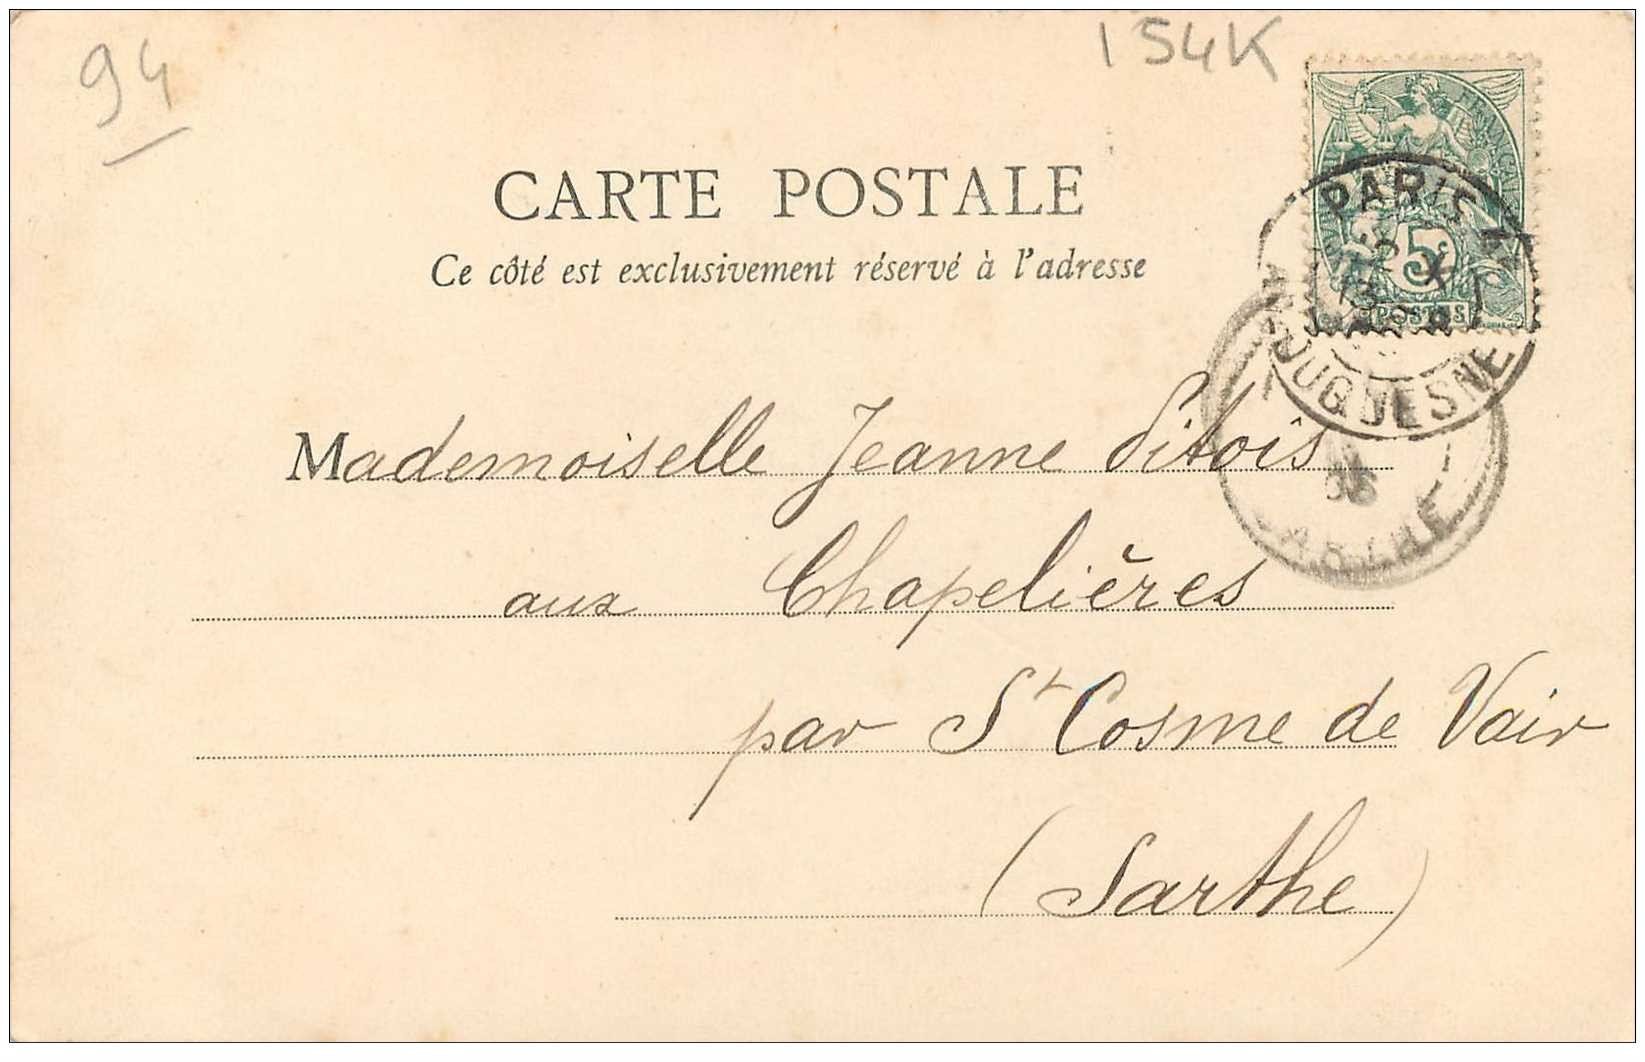 94
154K
CARTE POSTALE
Ce côté est exclusivement réservé à l'adresse
PARIS
5
POSTES
DUQUESNE
Mademoiselle Jeanne Pitois
aux Chapelières
par St Cosme de Vair
(Sarthe)